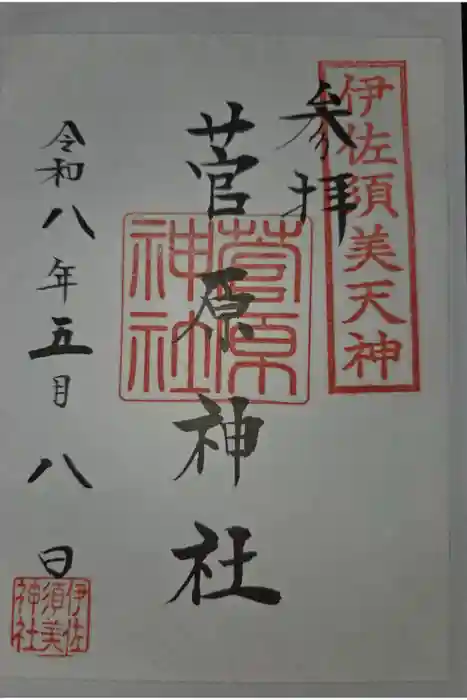 伊佐須美天神
参拝
菅原神社
菅原神社
令和八年五月八日
伊佐須美神社